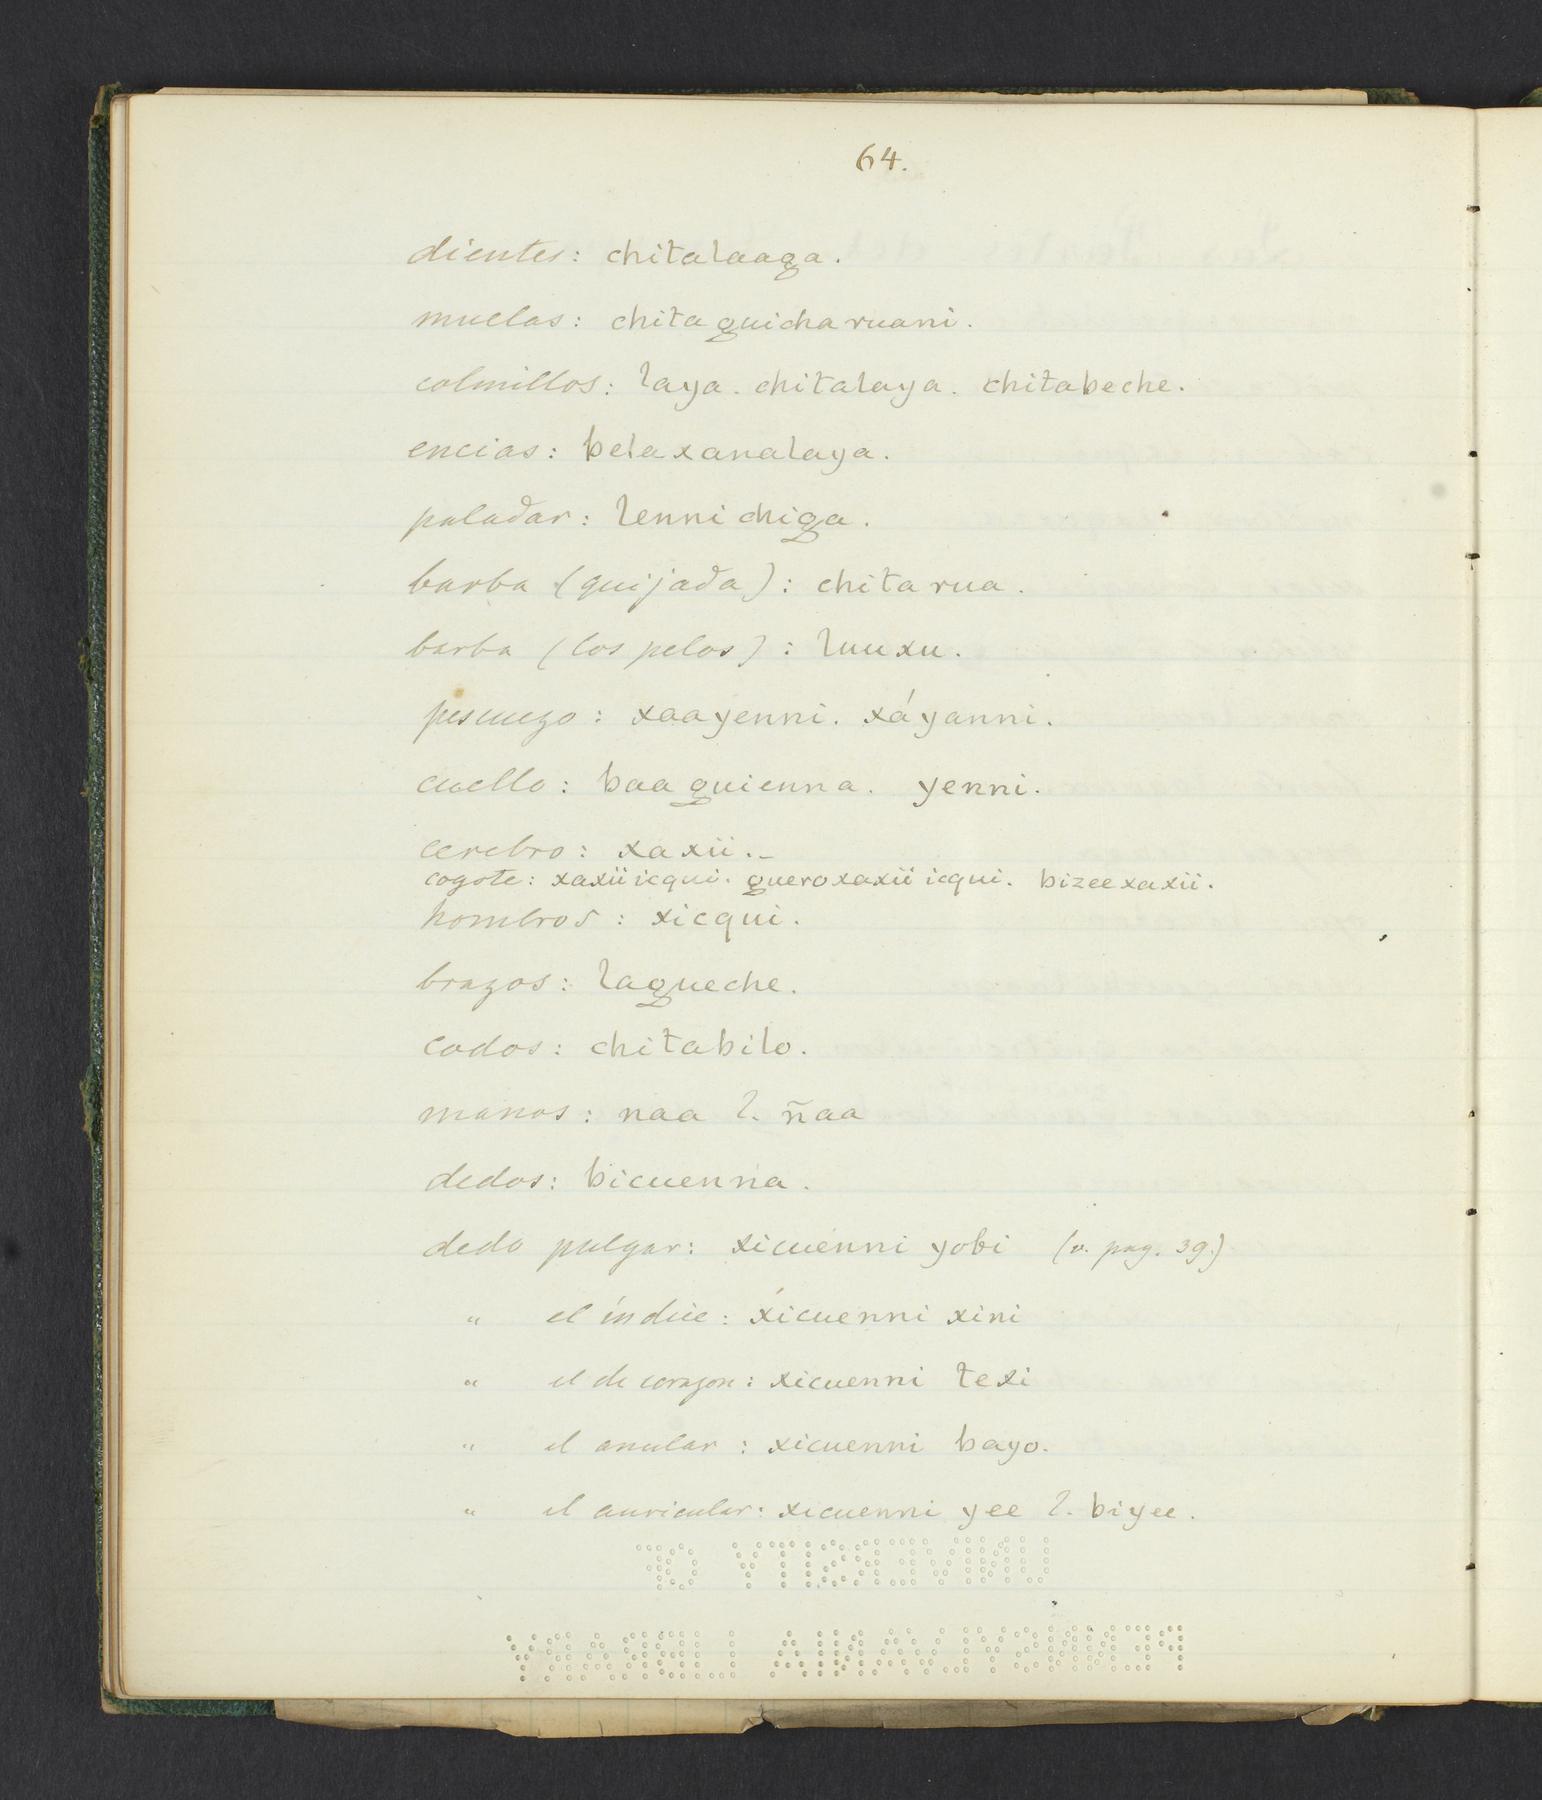 64.
dientes: chitalaaga.
muelas: chita guicha ruani.
colmillos: laya. chitalaya. chitabeche.
encias: belaxanalaya.
paladar: lennichiga.
barba (quijada): chita rua.
barba (los pelos): luuxu.
pescuezo: xaayenni. xáyanni.
cuello: baa guienna. yenni.
cerebro: xaxii.-
cogote: xaxii icqui. guero xaxii icqui. bizee xaxii.
hombros: xicqui.
brazos: lagueche.
codos: chitabilo.
manos: naa l. ñaa
dedos: bicuenna.
dedo pulgar: xicuénni yobi (v. pag. 39.)
" el índice: xícuenni xini
" el de corazon: xicuenni texi
" el anular: xicuenni bayo.
" el auricular: xicuenni yee l. biyee.
UNIVERSITY OF
PENNSYLVANIA LIBRARY